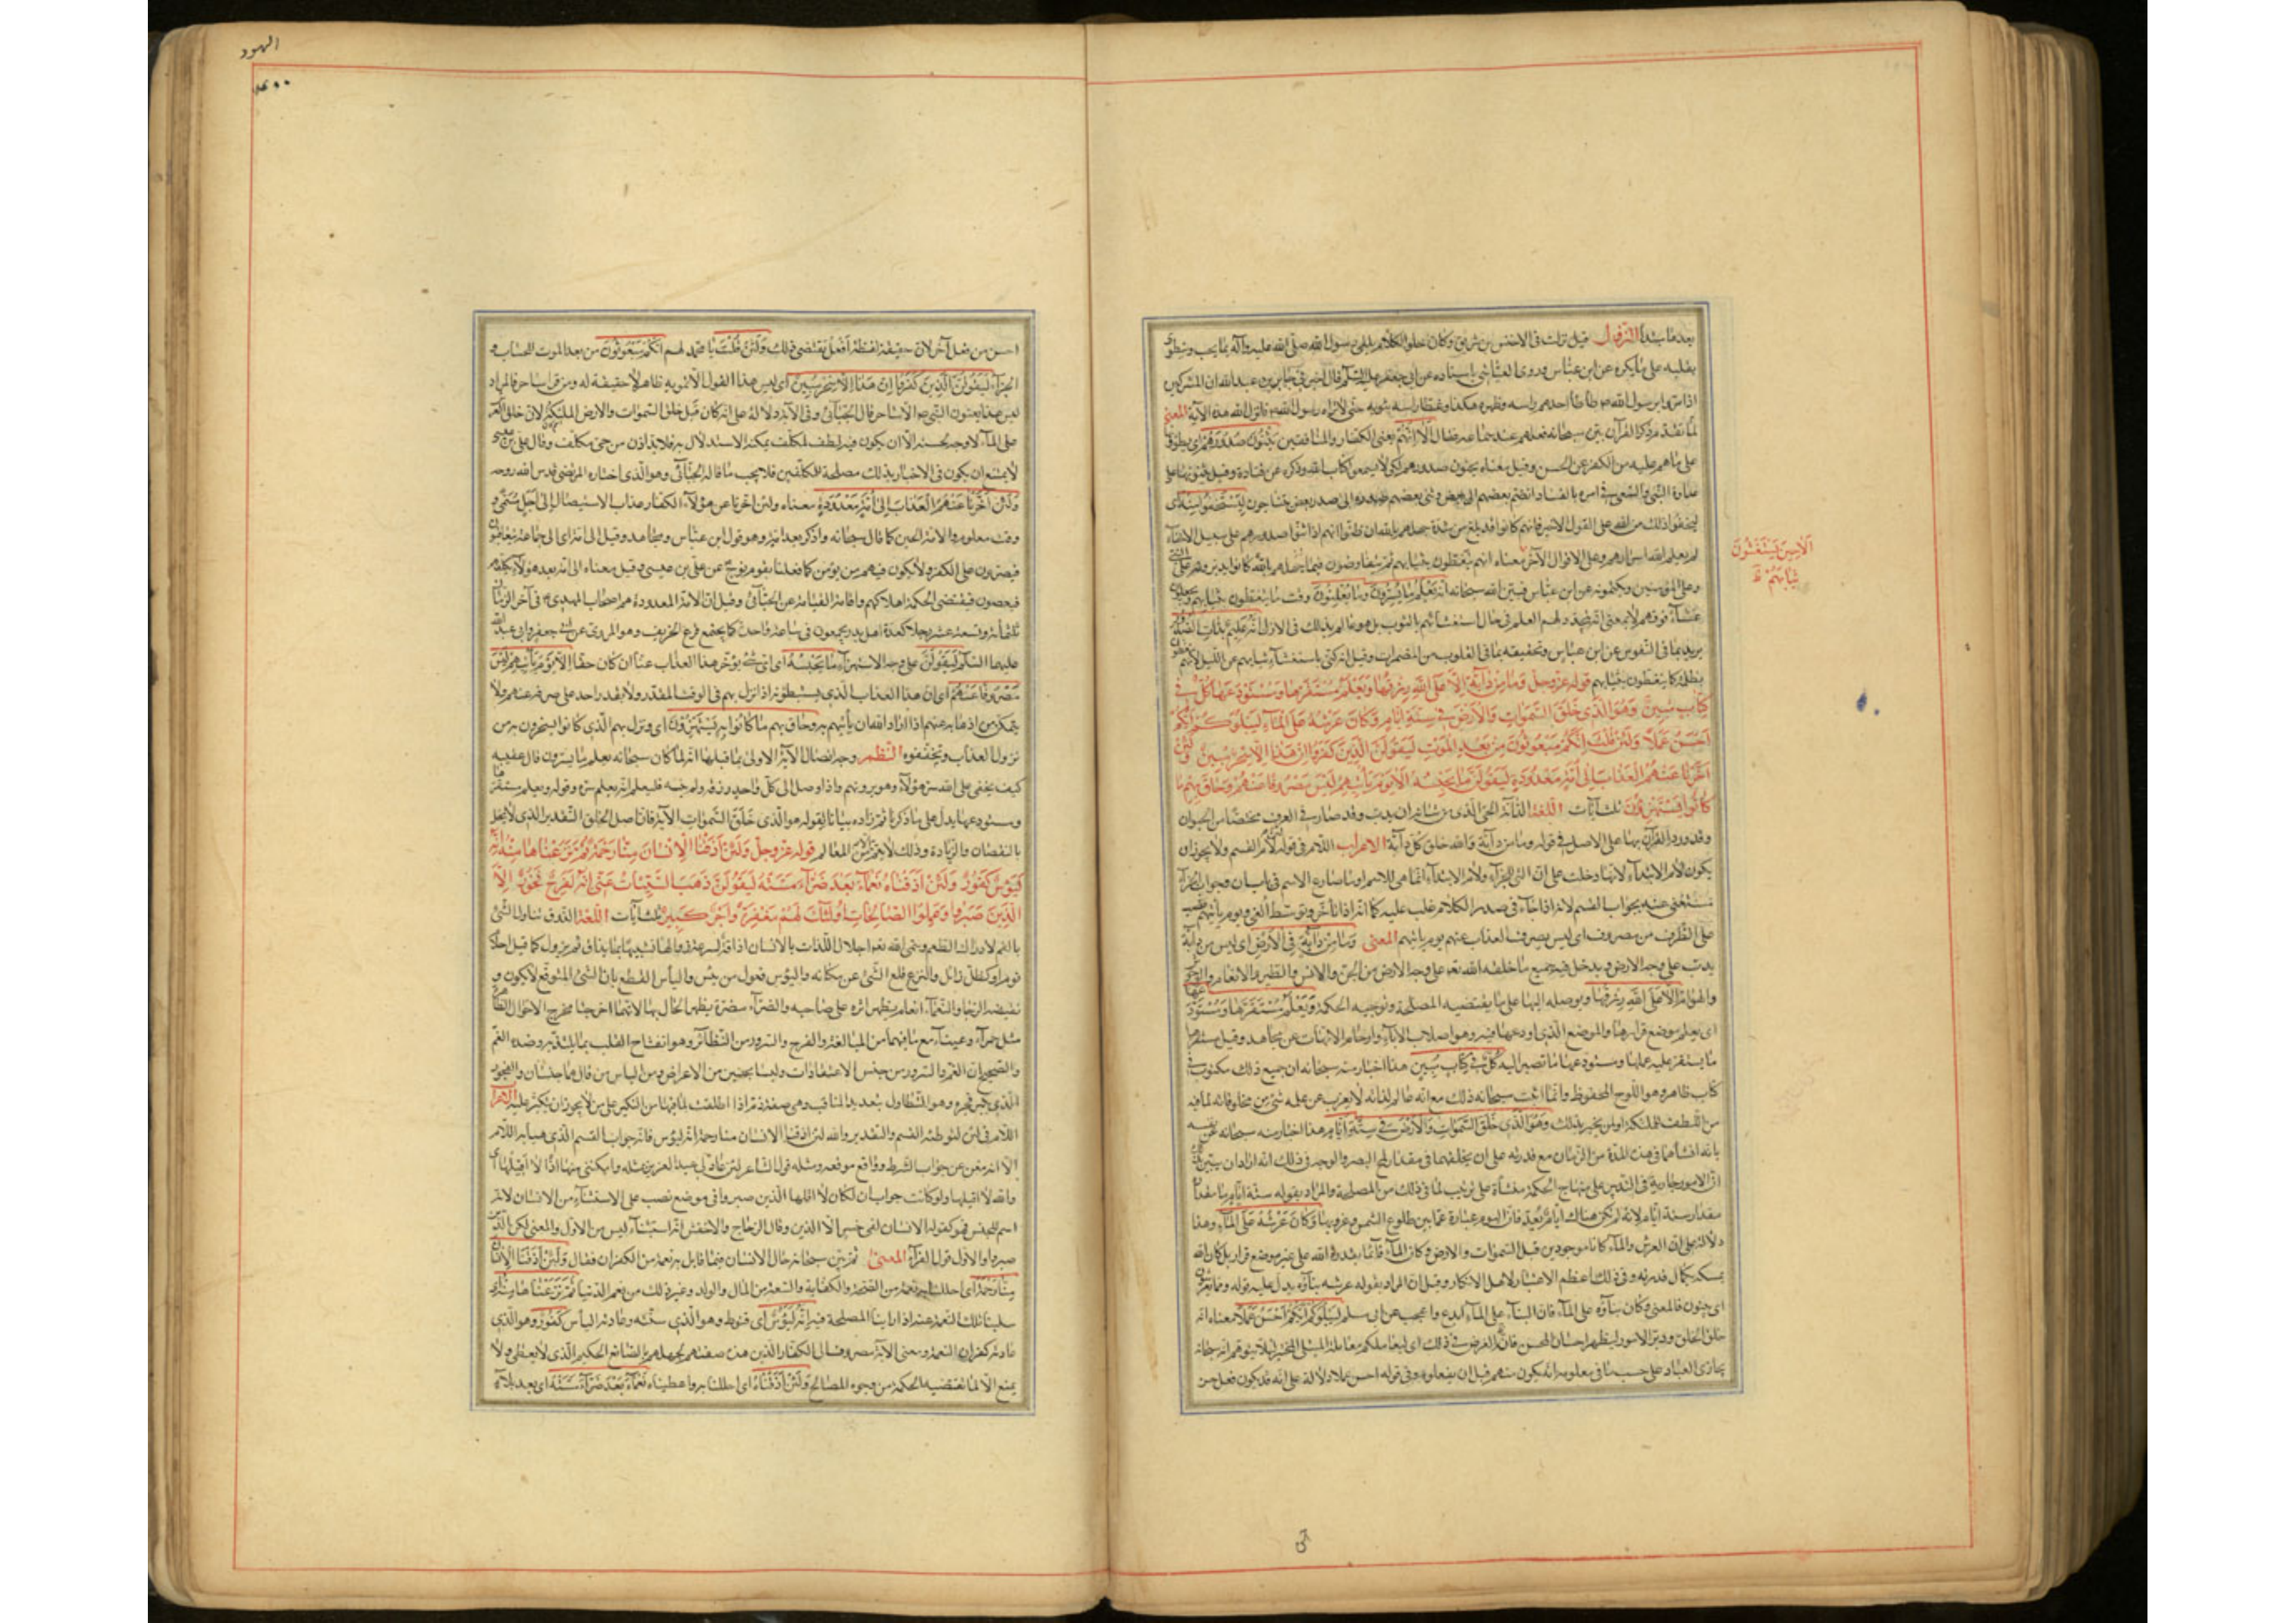 بعد ما بشدا النزول قيل نزلت فى الاخنس بن شريق وكان حلو الكلام يلقى رسول الله صلى الله عليه وآله بما يحب وينطوى
بقلبه على ما يكره عن ابن عباس وروى العياشى باسناده عن ابى جعفر عليه السلم قال اخبرنى جابر بن عبد الله ان المشركين
اذا مروا برسول الله ص طاطا احدهم راسه وظهره هكذا وغطا راسه بثوبه حتى لا يراه رسول الله ص فانزل الله هذه الآية المعنى
لما تقدم ذكر القرآن بين سبحانه فعلهم عند سماعه فقال الا انهم يعنى الكفار والمنافقين يثنون صدورهم اى يطوونها
على ما هم عليه من الكفر عن الحسن وقيل معناه يحنون صدورهم لكى لا يسمعوا كتاب الله وذكره عن قتادة وقيل يثنونها على
عداوة النبى والسعى فى امره بالفساد انضم بعضهم الى بعض وثنى بعضهم صدره الى صدر بعض يتناجون ليستخفوا منه اى
ليخفوا ذلك من الله على القول الاخير فانهم كانوا قد بلغ من شدة جهلهم بالله ان ظنوا انهم اذا ثنوا صدورهم على سبيل الاخفاء
لم يعلم الله اسرارهم وعلى الاقوال الآخر معناه انهم يتغطون بثيابهم ثم يتفاوضون فيما كانوا يدبرونه على النبى
الا حين يستغشون
ثيابهم
وعلى المؤمنين ويكتمونه عن ابن عباس فبين الله سبحانه انه يعلم ما يسرون وما يعلنون وقت ما يتغطون بثيابهم
غشاء فوقهم لا بمعنى انه يتجدد له العلم فى حال استغشائهم بالثوب بل هو عالم بذلك فى الازل انه عليم بذات الصدور
يريد بما فى النفوس عن ابن عباس وحقيقته بما فى القلوب من المضمرات وقيل انه كنى باستغشاء ثيابهم عن الليل لانهم يتغطون
بظلمته كما يتغطون بثيابهم قوله عز وجل وما من دابة الا على الله رزقها ويعلم مستقرها ومستودعها كل فى
كتاب مبين وهو الذى خلق السموات والارض فى ستة ايام وكان عرشه على الماء ليبلوكم ايكم
احسن عملا ولئن قلت انكم مبعوثون من بعد الموت ليقولن الذين كفروا ان هذا الا سحر مبين ولئن
اخرنا عنهم العذاب الى امة معدودة ليقولن ما يحبسه الا يوم ياتيهم ليس مصروفا عنهم وحاق بهم ما
كانوا به يستهزؤن ثلث آيات اللغة الدابة الحى الذى من شانه ان يدب وقد صار فى العرف مختصا من الحيوان
وقد ورد القرآن بها على الاصل فى قوله وما من دابة والله خلق كل دابة الاعراب اللام فى قوله لام القسم ولا يجوز ان
يكون لام الابتداء لانها دخلت على ان التى للجزاء ولام الابتداء انما هى للاسم او ما ضارع الاسم فى باب ان وجواب الجزاء
مستغنى عنه بجواب القسم لانه اذا جاء فى صدر الكلام غلب عليه كما انه اذا تاخر وتوسط الغى ويوم ياتيهم نصب
على الظرف من مصروف اى ليس يصرف العذاب عنهم يوم ياتيهم المعنى وما من دابة فى الارض اى ليس من دابة
يدب على وجه الارض ويدخل فيه جميع ما خلقه الله تعه على وجه الارض من الجن والانس والطير والانعام والوحوش
والهوام الا على الله رزقها ويوصله اليها على ما يقتضيه المصلحة وتوجبه الحكمة ويعلم مستقرها ومستودعها
اى يعلم موضع قرارها والموضع الذى اودعها فيه وهو اصلاب الآباء وارحام الامهات عن مجاهد وقيل مستقرها
ما يستقر عليه عملها ومستودعها ما تصير اليه كل فى كتاب مبين هذا اخبار منه سبحانه ان جميع ذلك مكتوب فى
كتاب ظاهر وهو اللوح المحفوظ وانما اثبت سبحانه ذلك مع انه عالم لذاته لا يعزب عن علمه شئ من مخلوقاته لما فيه
من اللطف للملئكة او لمن يخبر بذلك وهو الذى خلق السموات والارض فى ستة ايام هذا اخبار منه سبحانه عن نفسه
بانه انشاهما فى هذه المدة من الزمان مع قدرته على ان يخلقهما فى مقدار لمح البصر والوجه فى ذلك انه اراد ان يبين
ان الامور جارية فى التدبير على منهاج الحكمة منشاة على ترتيب لما فى ذلك من المصلحة والمراد بقوله ستة ايام ما مقداره
مقدار ستة ايام لانه لم تكن هناك ايام تعد فان اليوم عبارة عما بين طلوع الشمس وغروبها وكان عرشه على الماء وهذا
دلالة على ان العرش والماء كانا موجودين قبل السموات والارض وكان الماء قائما بقدرة الله على غير موضع قرار بل كان الله
يمسكه بكمال قدرته وفى ذلك اعظم الاعتبار لاهل الانكار وقيل ان المراد بقوله عرشه بناؤه يدل عليه قوله ومما يعرشون
اى يبنون فالمعنى وكان بناؤه على الماء فان البناء على الماء ابدع واعجب عن ابى مسلم ليبلوكم ايكم احسن عملا معناه انه
خلق الخلق ودبر الامور ليظهر احسان المحسن فانه الغرض فى ذلك اى ليعاملكم معاملة المبتلى المختبر لئلا يتوهم انه سبحانه
يجازى العباد على حسب ما فى معلومه انه يكون منهم قبل ان يفعلوه وفى قوله احسن عملا دلالة على انه قد يكون فعل حسن
الهود
احسن من فعل آخر لان حقيقة لفظة افعل يقتضى ذلك ولئن قلت يا محمد لهم انكم مبعوثون من بعد الموت للحساب و
الجزاء ليقولن الذين كفروا ان هذا الا سحر مبين اى ليس هذا القول الا تمويه ظاهر لا حقيقة له ومن قرا ساحر فالمراد
ليس هذا يعنون النبى ص الا ساحر قال الجبائى وفى الآية دلالة على انه كان قبل خلق السموات والارض الملئكة لان خلق العرش
على الماء لا وجه لحسنه الا ان يكون فيه لطف لمكلف يمكنه الاستدلال به فلا بد اذن من حى مكلف وقال على بن عيسى
لا يمتنع ان يكون فى الاخبار بذلك مصلحة للمكلفين فلا يجب ما قاله الجبائى وهو الذى اختاره المرتضى قدس الله روحه
ولئن اخرنا عنهم العذاب الى امة معدودة معناه ولئن اخرنا عن هؤلاء الكفار عذاب الاستيصال الى اجل مسمى و
وقت معلوم والامة الحين كما قال سبحانه واذكر بعد امة وهو قول ابن عباس ومجاهد وقيل الى امة اى الى جماعة يتعاقبون
فيصرون على الكفر ولا يكون فيهم من يؤمن كما فعلنا بقوم نوح عن على بن عيسى وقيل معناه الى امة بعد هؤلاء نكلفهم
فيعصون فيقتضى الحكمة اهلاكهم واقامة القيامة عن الجبائى وقيل ان الامة المعدودة هم اصحاب المهدى ع فى آخر الزمان
ثلثمائة وبضعة عشر رجلا كعدة اهل بدر يجمعون فى ساعة واحدة كما يجتمع قزع الخريف وهو المروى عن ابى جعفر وابى عبد الله
عليهما السلم ليقولن على وجه الاستهزاء ما يحبسه اى اى شئ يؤخر هذا العذاب عنا ان كان حقا الا يوم ياتيهم ليس
مصروفا عنهم اى ان هذا العذاب الذى يستبطؤنه اذا نزل بهم فى الوقت المقدر ولا يقدر احد على صرفه عنهم ولا
يتمكن من اذهابه عنهم اذا اراد الله ان ياتيهم به وحاق بهم ما كانوا به يستهزؤن اى ونزل بهم الذى كانوا يسخرون به من
نزول العذاب وتحققوه النظم وجه اتصال الآية الاولى بما قبلها انه لما كان سبحانه يعلم ما يسرون قال عقيبه
كيف يخفى على الله سر هؤلاء وهو يرزقهم واذا وصل الى كل واحد رزقه ولم ينسه فليعلم انه يعلم سره وقوله ويعلم مستقرها
ومستودعها يدل على ما ذكرنا ثم زاده بيانا لقوله هو الذى خلق السموات الآية فان اصل الخلق التقدير الذى لا يختل
بالنقصان والزيادة وذلك لا يتم الا من العالم قوله عز وجل ولئن اذقنا الانسان منا رحمة ثم نزعناها منه انه
ليؤس كفور ولئن اذقناه نعماء بعد ضراء مسته ليقولن ذهب السيئات عنى انه لفرح فخور الا
الذين صبروا وعملوا الصالحات اولئك لهم مغفرة واجر كبير ثلث آيات اللغة الذوق تناول الشئ
بالفم لادراك الطعم وسمى الله تعه احلال اللذات بالانسان اذاقة لسرعة زوالها تشبيها بما يذاق ثم يزول كما قيل احلام
نوم او كظل زائل والنزع قلع الشئ عن مكانه واليؤس فعول من يئس والياس القطع بان الشئ المتوقع لا يكون و
نقيضه الرجا والنعماء انعام يظهر اثره على صاحبه والضراء مضرة يظهر الحال بها لانهما اخرجتا مخرج الاحوال الظاهرة
مثل حمراء وعيناء مع ما فيهما من المبالغة والفرح والسرور من النظائر وهو انفتاح القلب بما يلتذ به وضده الغم
والصحيح ان الغم والسرور من جنس الاعتقادات وليسا بجنسين من الاعراض ومن الناس من قال هما جنسان والفخور
الذى يكثر فخره وهو التطاول بتعديد المناقب وهى صفة ذم اذا اطلقت لما فيها من التكبر على من لا يجوز ان يتكبر عليه الاعراب
اللام فى لئن لتوطئة القسم والتقدير والله لئن اذقنا الانسان منا رحمة انه ليؤس فانه جواب القسم الذى هيأته اللام
الا انه مغن عن جواب الشرط وواقع موقعه ومثله قول الشاعر لئن عاد لى عبد العزيز بمثلها وامكننى منها اذا لا اقيلها اى
والله لا اقيلها ولو كانت جواب ان لكان لا اقلها الا الذين صبروا فى موضع نصب على الاستثناء من الانسان لانه
اسم للجنس فهو كقوله ان الانسان لفى خسر الا الذين وقال الزجاج والاخفش انه استثناء ليس من الاول والمعنى لكن الذين
صبروا والاول قول الفراء المعنى ثم بين سبحانه حال الانسان فيما قابل به نعمه من الكفران فقال ولئن اذقنا الانسان
منا رحمة اى احللنا به نعمة من الصحة والكفاية والسعة من المال والولد وغير ذلك من نعم الدنيا ثم نزعناها منه اى
سلبنا تلك النعمة عنه اذا راينا المصلحة فيه انه ليؤس اى قنوط وهو الذى سنته وعادته الياس كفور وهو الذى
عادته كفران النعمة ومعنى الآية مصروف الى الكفار الذين هذه صفتهم لجهلهم بالصانع الحكيم الذى لا يعطى ولا
يمنع الا لما تقتضيه الحكمة من وجوه المصالح ولئن اذقناه اى احللنا به واعطيناه نعماء بعد ضراء مسته اى بعد بلاء